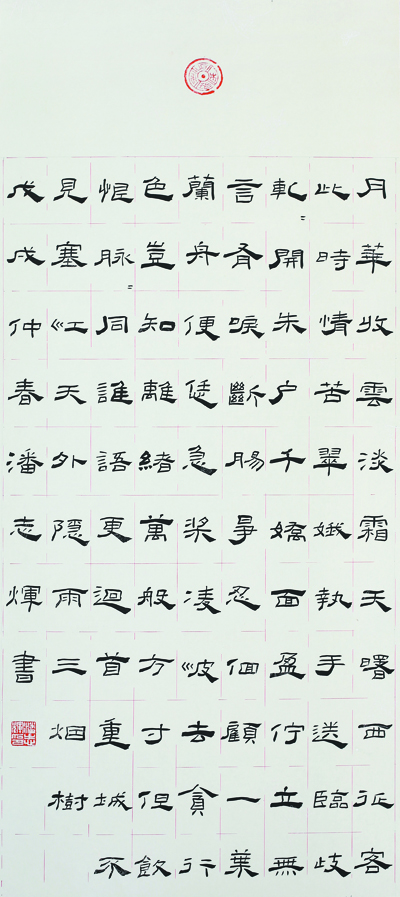 月華收雲淡霜天曙西征客
此時情苦翠娥執手送臨歧
軋〻開朱戶千嬌面盈佇立無
言有淚斷腸爭忍佪顧一葉
蘭舟便恁急槳凌波去貪行
色豈知離緒萬般方寸但飲
恨脉〻同誰語更迴首重城不
見寒江天外隱兩三烟樹
戊戌仲春潘志煇書